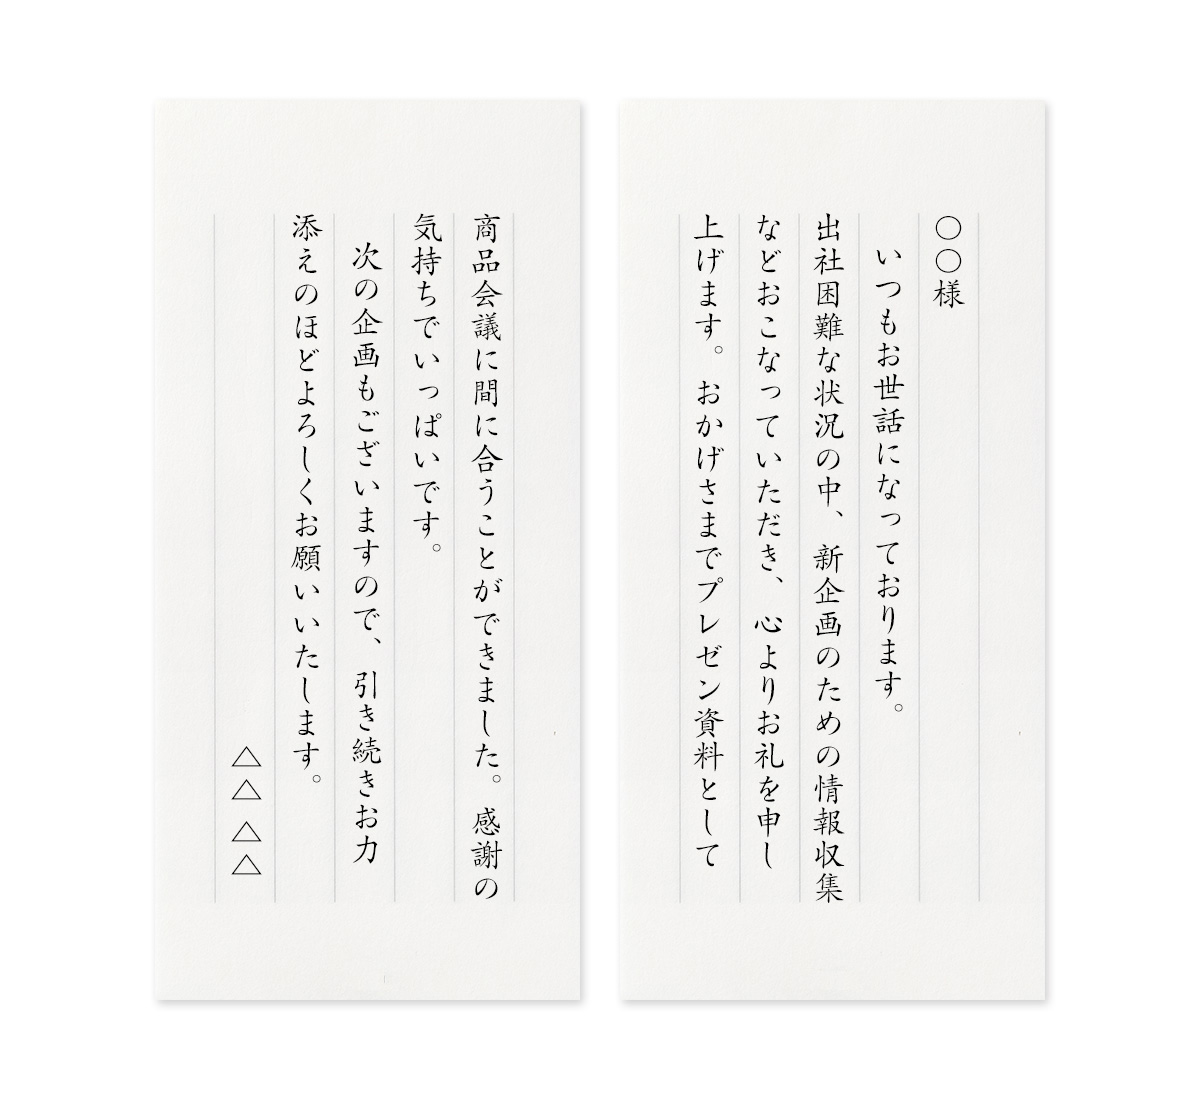 〇〇様
いつもお世話になっております。
出社困難な状況の中、新企画のための情報収集
などおこなっていただき、心よりお礼を申し
上げます。おかげさまでプレゼン資料として
商品会議に間に合うことができました。感謝の
気持ちでいっぱいです。
次の企画もございますので、引き続きお力
添えのほどよろしくお願いいたします。
△△ △△